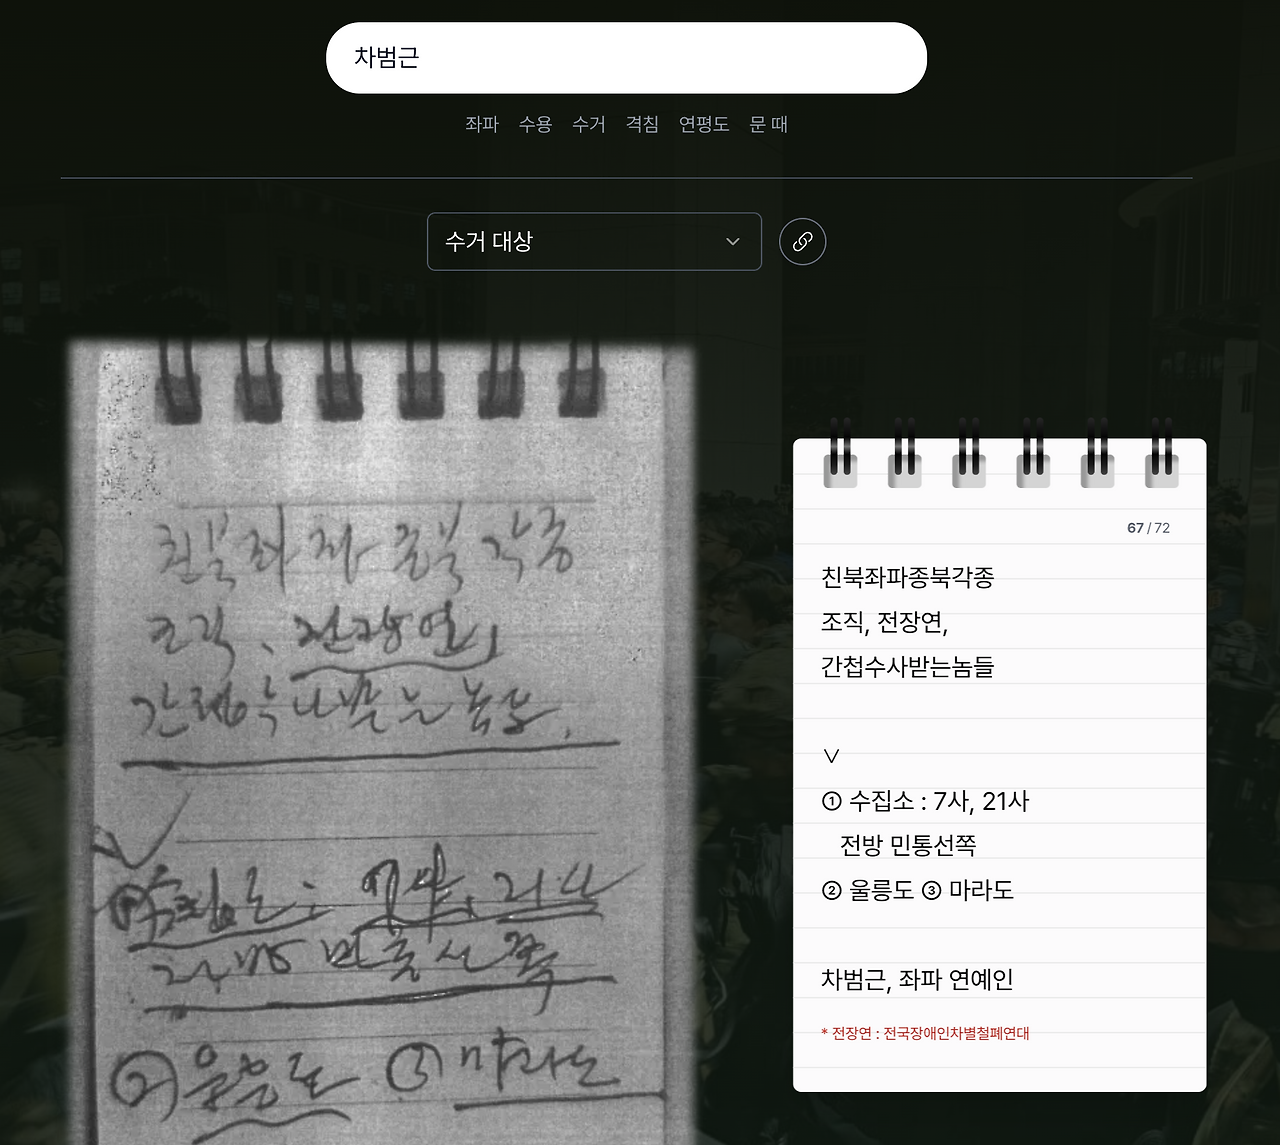 차범근
좌파 수용 수거 격침 연평도 문 때
수거 대상
친북좌파종북각종
조직, 전장연,
간첩수사받는놈들.
√
① 수집소: 7사, 21사
전방 민통선쪽
② 울릉도 ③ 마라도
67 / 72
친북좌파종북각종
조직, 전장연,
간첩수사받는놈들
∨
① 수집소 : 7사, 21사
전방 민통선쪽
② 울릉도 ③ 마라도
차범근, 좌파 연예인
* 전장연 : 전국장애인차별철폐연대